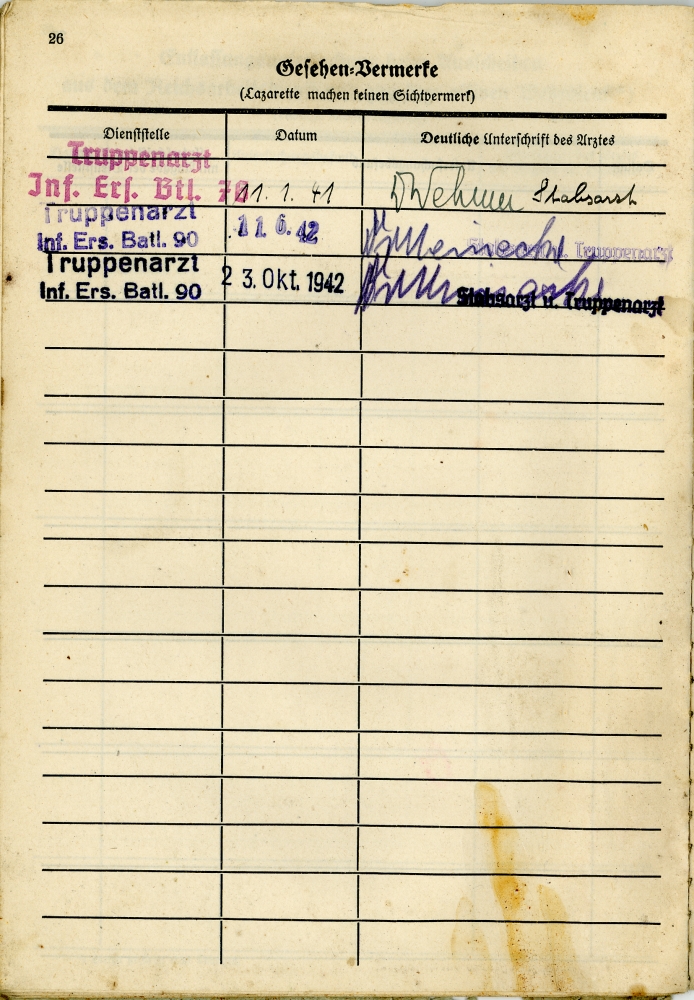 26
Gesehen-Vermerke
(Lazarette machen keinen Sichtvermerk)
Dienststelle Datum Deutliche Unterschrift des Arztes
Truppenarzt
Inf. Ers. Btl. 11. 1. 41 Stabsarzt
Truppenarzt
Inf. Ers. Batl. 90 11. 6. 42 Truppenarzt
Truppenarzt
Inf. Ers. Batl. 90 23. Okt. 1942 Stabsarzt u. Truppenarzt